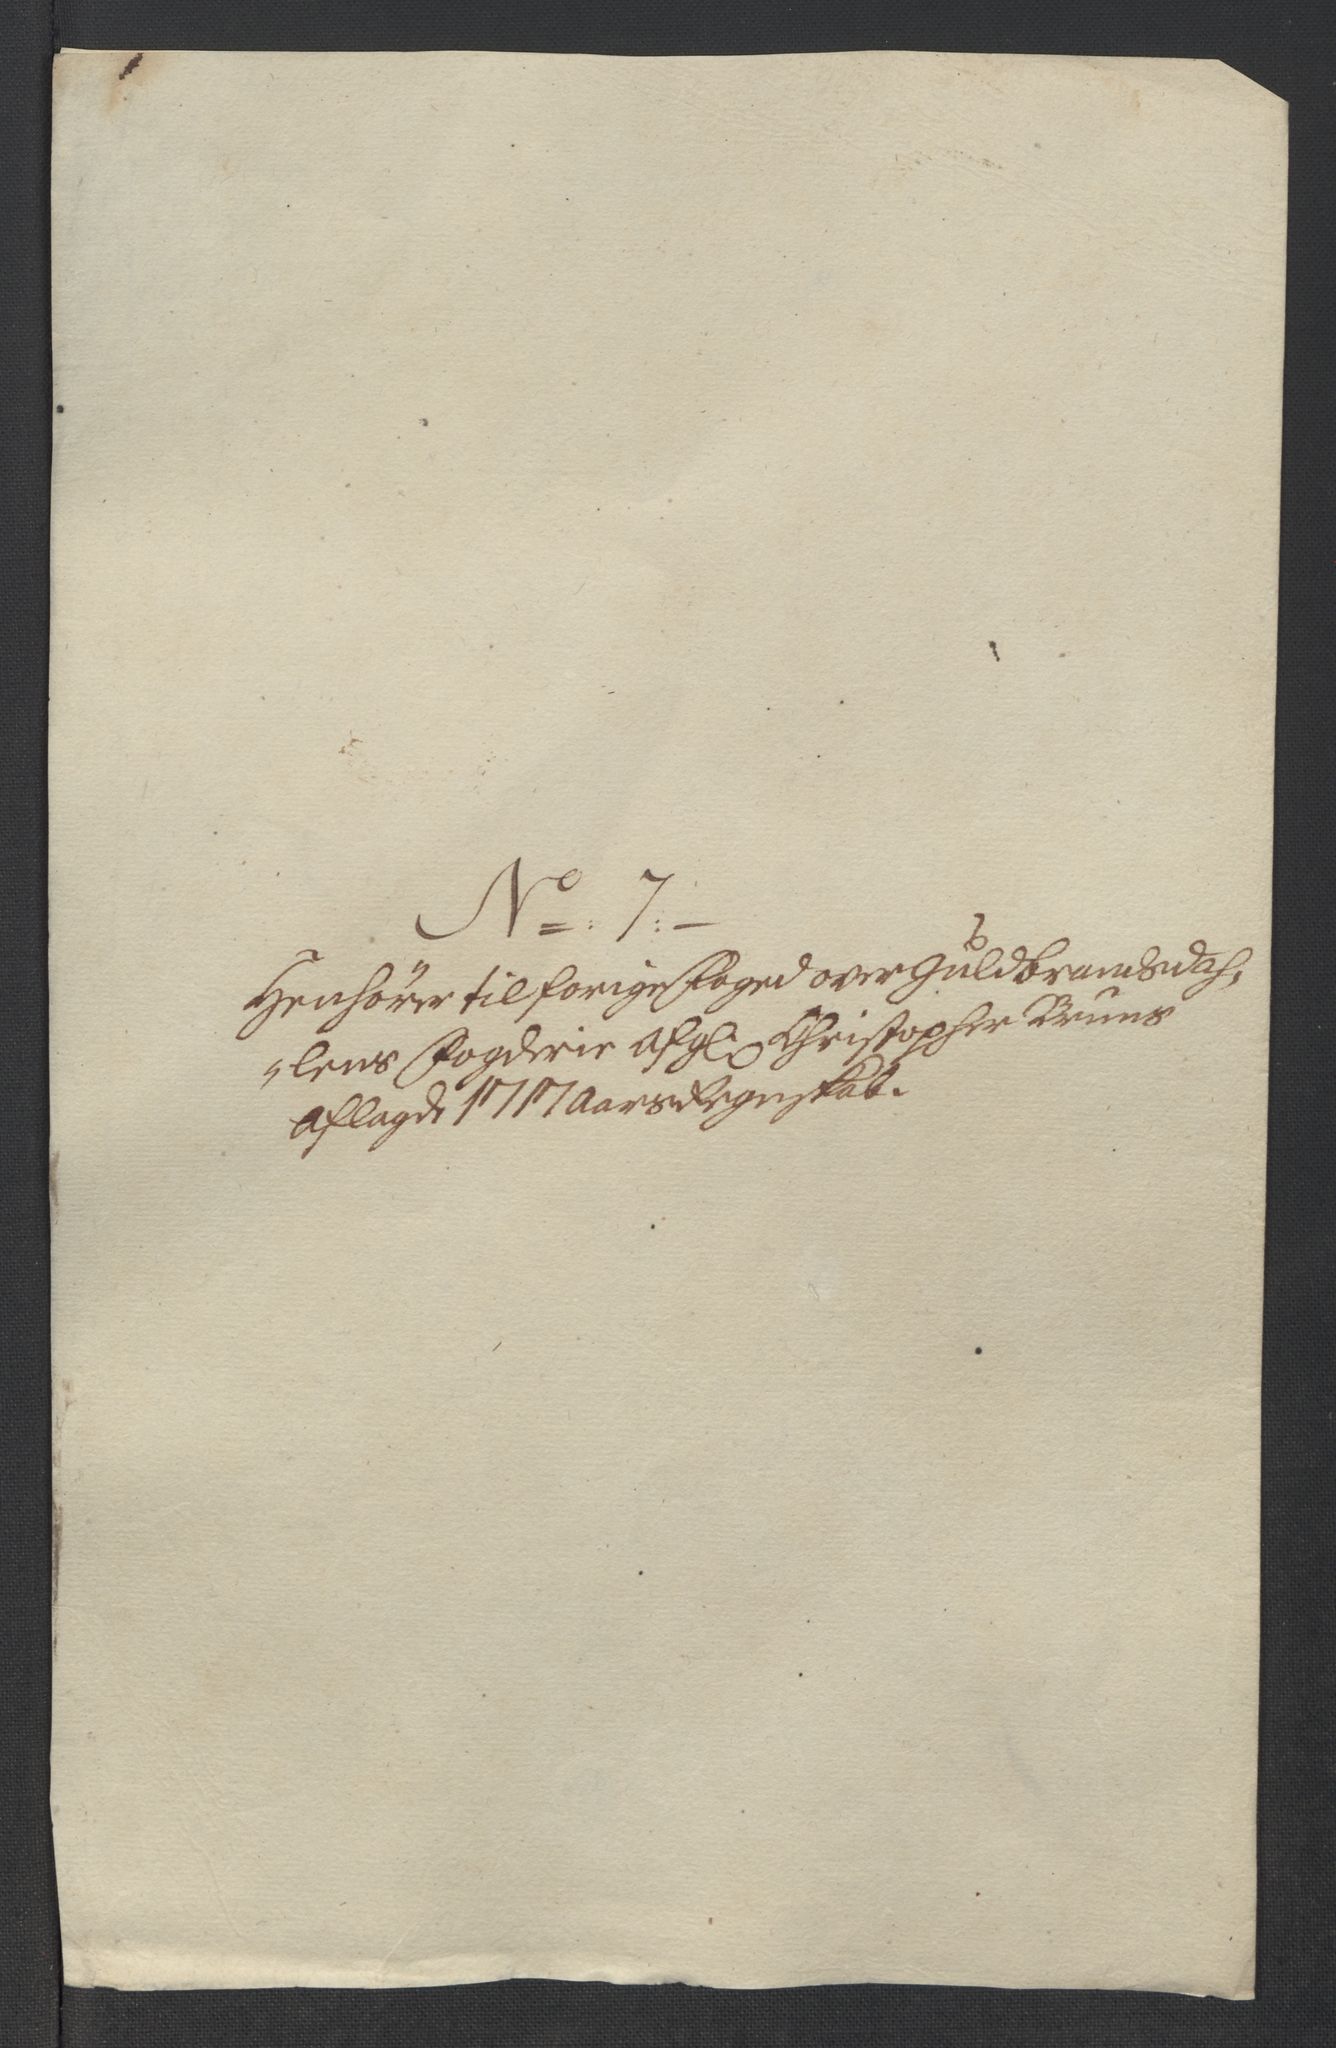 No: 7:
Henhörer til forige Foged over Guldbrandsdah,
lens Fogderie Afgl: Christopher Bruuns
aflagde 1717 Aars Regnskab.